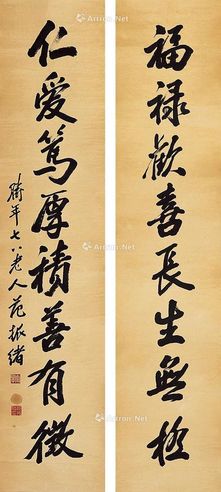 福禄歡喜長生無極
仁愛篤厚積善有徵
年七八老人范振緒
Artron.Net
Artron.Net